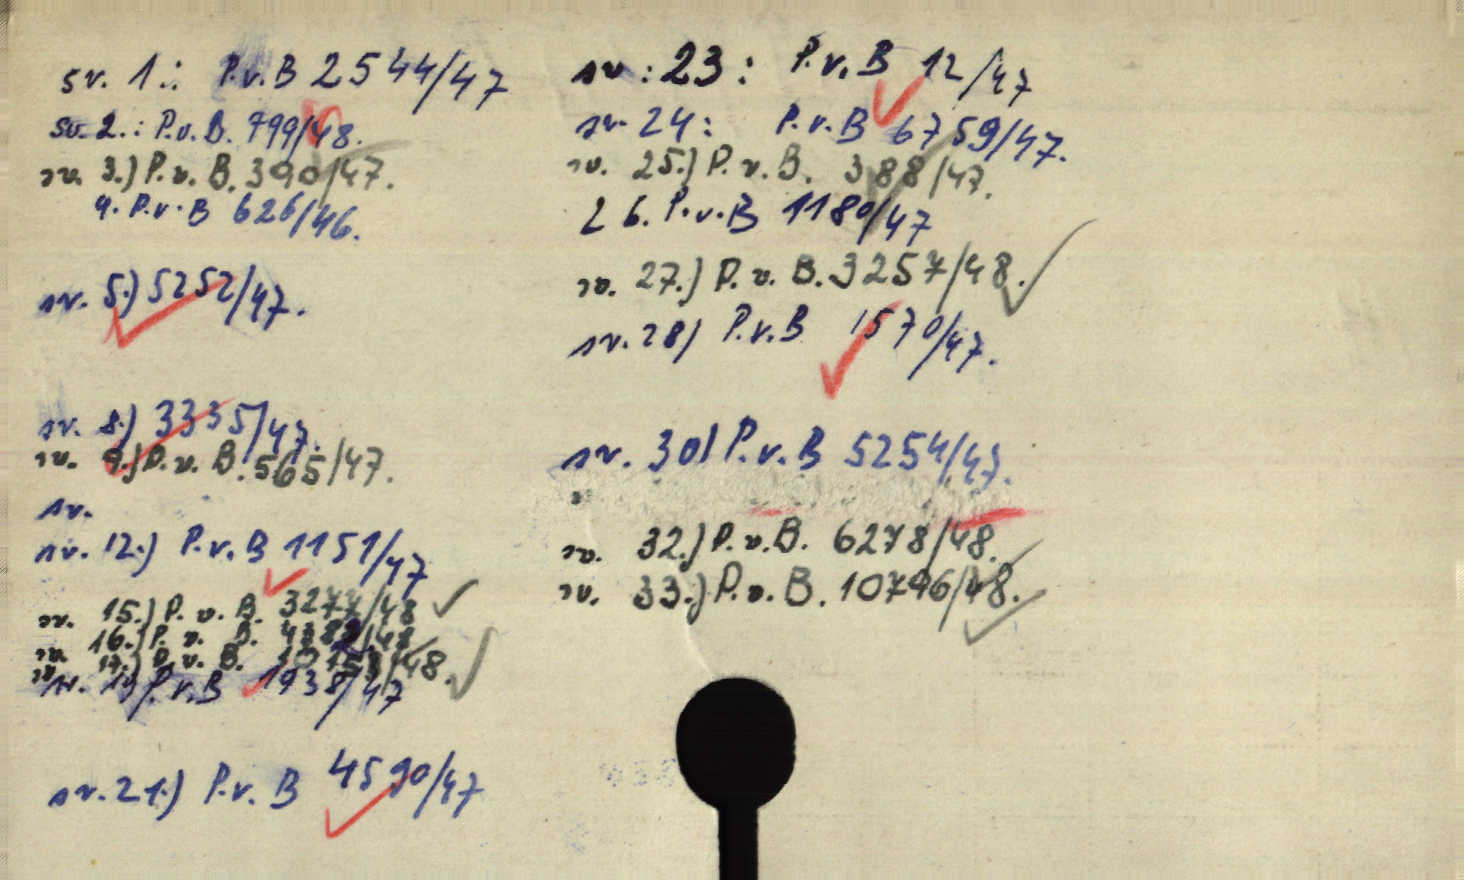 sv. 1.: P.v.B 2544/47
sv. 2.: P.v.B. 799/48.
sv. 3.) P.v.B. 390/47.
4. P.v.B 626/46.
sv. 5.) 5252/47.
sv. 8.) 3335/47.
sv. 9.) P.v.B. 565/47.
sv.
sv. 12.) P.v.B 1151/47
sv. 15.) P.v.B. 3277/48
sv. 16.) P.v.B. /48
sv. 17.) P.v.B. /48.
sv. 19) P.v.B 1938/47
sv. 21.) P.v.B 4590/47
sv: 23: P.v.B 12/47
sv. 24: P.v.B 6759/47.
sv. 25.) P.v.B. 388/47.
26. P.v.B 1180/47
sv. 27.) P.v.B. 3257/48.
sv. 28) P.v.B 1570/47.
sv. 30) P.v.B 5254/47.
sv. 32.) P.v.B. 6278/48.
sv. 33.) P.v.B. 10796/48.